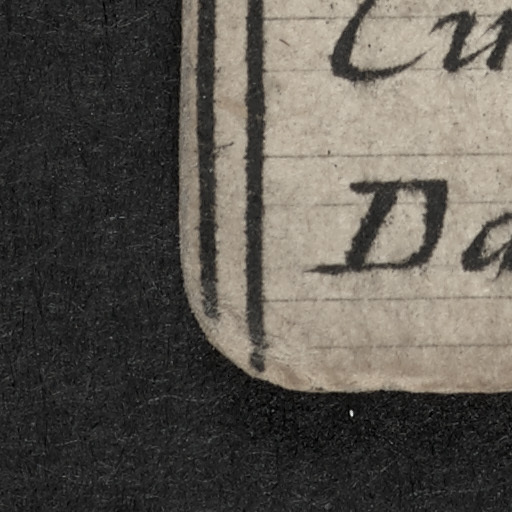 Cu
Da